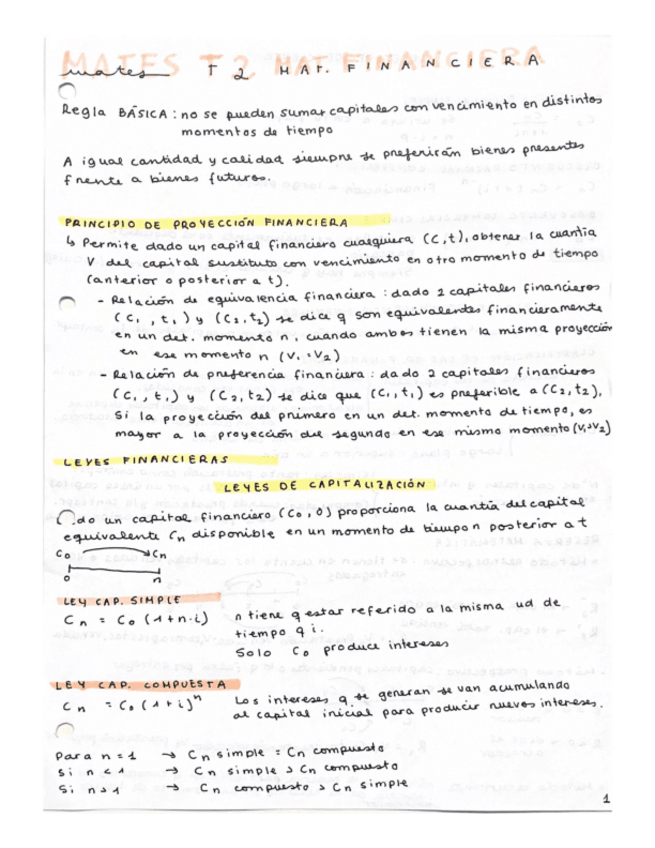 MATES T2 MAT. FINANCIERA
mates T2 MAT. FINANCIERA
Regla BÁSICA: no se pueden sumar capitales con vencimiento en distintos
momentos de tiempo
A igual cantidad y calidad siempre se preferirán bienes presentes
frente a bienes futuros.
PRINCIPIO DE PROYECCIÓN FINANCIERA
↳ Permite dado un capital financiero cualquiera (C,t), obtener la cuantía
V del capital sustituto con vencimiento en otro momento de tiempo
(anterior o posterior a t).
- Relación de equivalencia financiera: dado 2 capitales financieros
(C₁, t₁) y (C₂,t₂) se dice q son equivalentes financieramente
en un det. momento n, cuando ambos tienen la misma proyección
en ese momento n (V₁=V₂)
- Relación de preferencia financiera: dado 2 capitales financieros
(C₁, t₁) y (C₂, t₂) se dice que (C₁,t₁) es preferible a (C₂,t₂),
si la proyección del primero en un det. momento de tiempo, es
mayor a la proyección del segundo en ese mismo momento (V₁>V₂)
LEYES FINANCIERAS
LEYES DE CAPITALIZACIÓN
do un capital financiero (C₀, 0) proporciona la cuantía del capital
equivalente Cn disponible en un momento de tiempo n posterior a t
C₀ Cn
0 n
LEY CAP. SIMPLE
Cn = C₀ (1+n·i) n tiene q estar referido a la misma ud de
tiempo q i.
Solo C₀ produce intereses
LEY CAP. COMPUESTA
Cn = C₀ (1+i)ⁿ Los intereses q se generan se van acumulando
al capital inicial para producir nuevos intereses.
Para n=1 → Cn simple = Cn compuesto
Si n<1 → Cn simple > Cn compuesto
Si n>1 → Cn compuesto > Cn simple
1